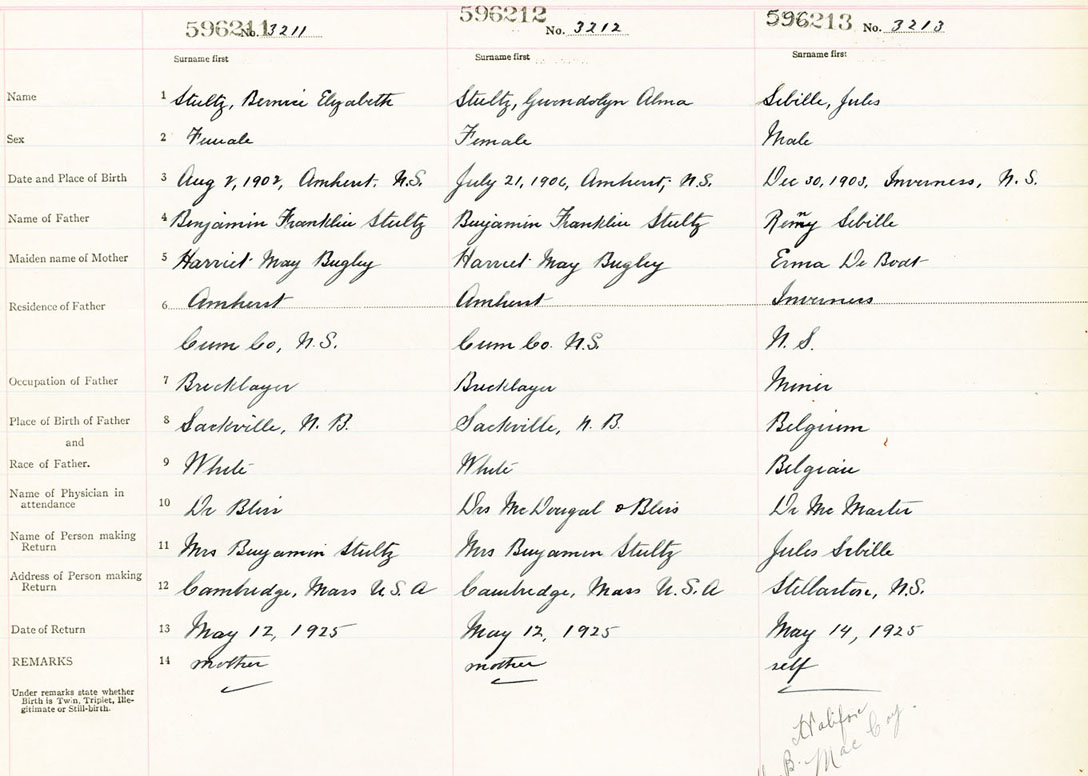 596211 No. 3211 596212 No. 3212 596213 No. 3213
Surname first Surname first Surname first
Name 1 Stultz, Bernice Elizabeth Stultz, Gwendolyn Alma Sebille, Jules
Sex 2 Female Female Male
Date and Place of Birth 3 Aug 2, 1902, Amherst, N.S. July 21, 1906, Amherst, N.S. Dec 30, 1903, Inverness, N.S.
Name of Father 4 Benjamin Franklin Stultz Benjamin Franklin Stultz Remy Sebille
Maiden name of Mother 5 Harriet May Bugley Harriet May Bugley Erma De Bodt
Residence of Father 6 Amherst Amherst Inverness
Cum Co, N.S. Cum Co. N.S. N.S.
Occupation of Father 7 Bricklayer Bricklayer Miner
Place of Birth of Father 8 Sackville, N.B. Sackville, N.B. Belgium
and
Race of Father. 9 White White Belgian
Name of Physician in attendance 10 Dr Bliss Drs McDougal & Bliss Dr Mc Master
Name of Person making Return 11 Mrs Benjamin Stultz Mrs Benjamin Stultz Jules Sebille
Address of Person making Return 12 Cambridge, Mass U.S.A Cambridge, Mass U.S.A Stellarton, N.S.
Date of Return 13 May 12, 1925 May 12, 1925 May 14, 1925
REMARKS 14 mother mother self
Under remarks state whether
Birth is Twin, Triplet, Ille-
gitimate or Still-birth.
Halifax
B. Mac Coy.